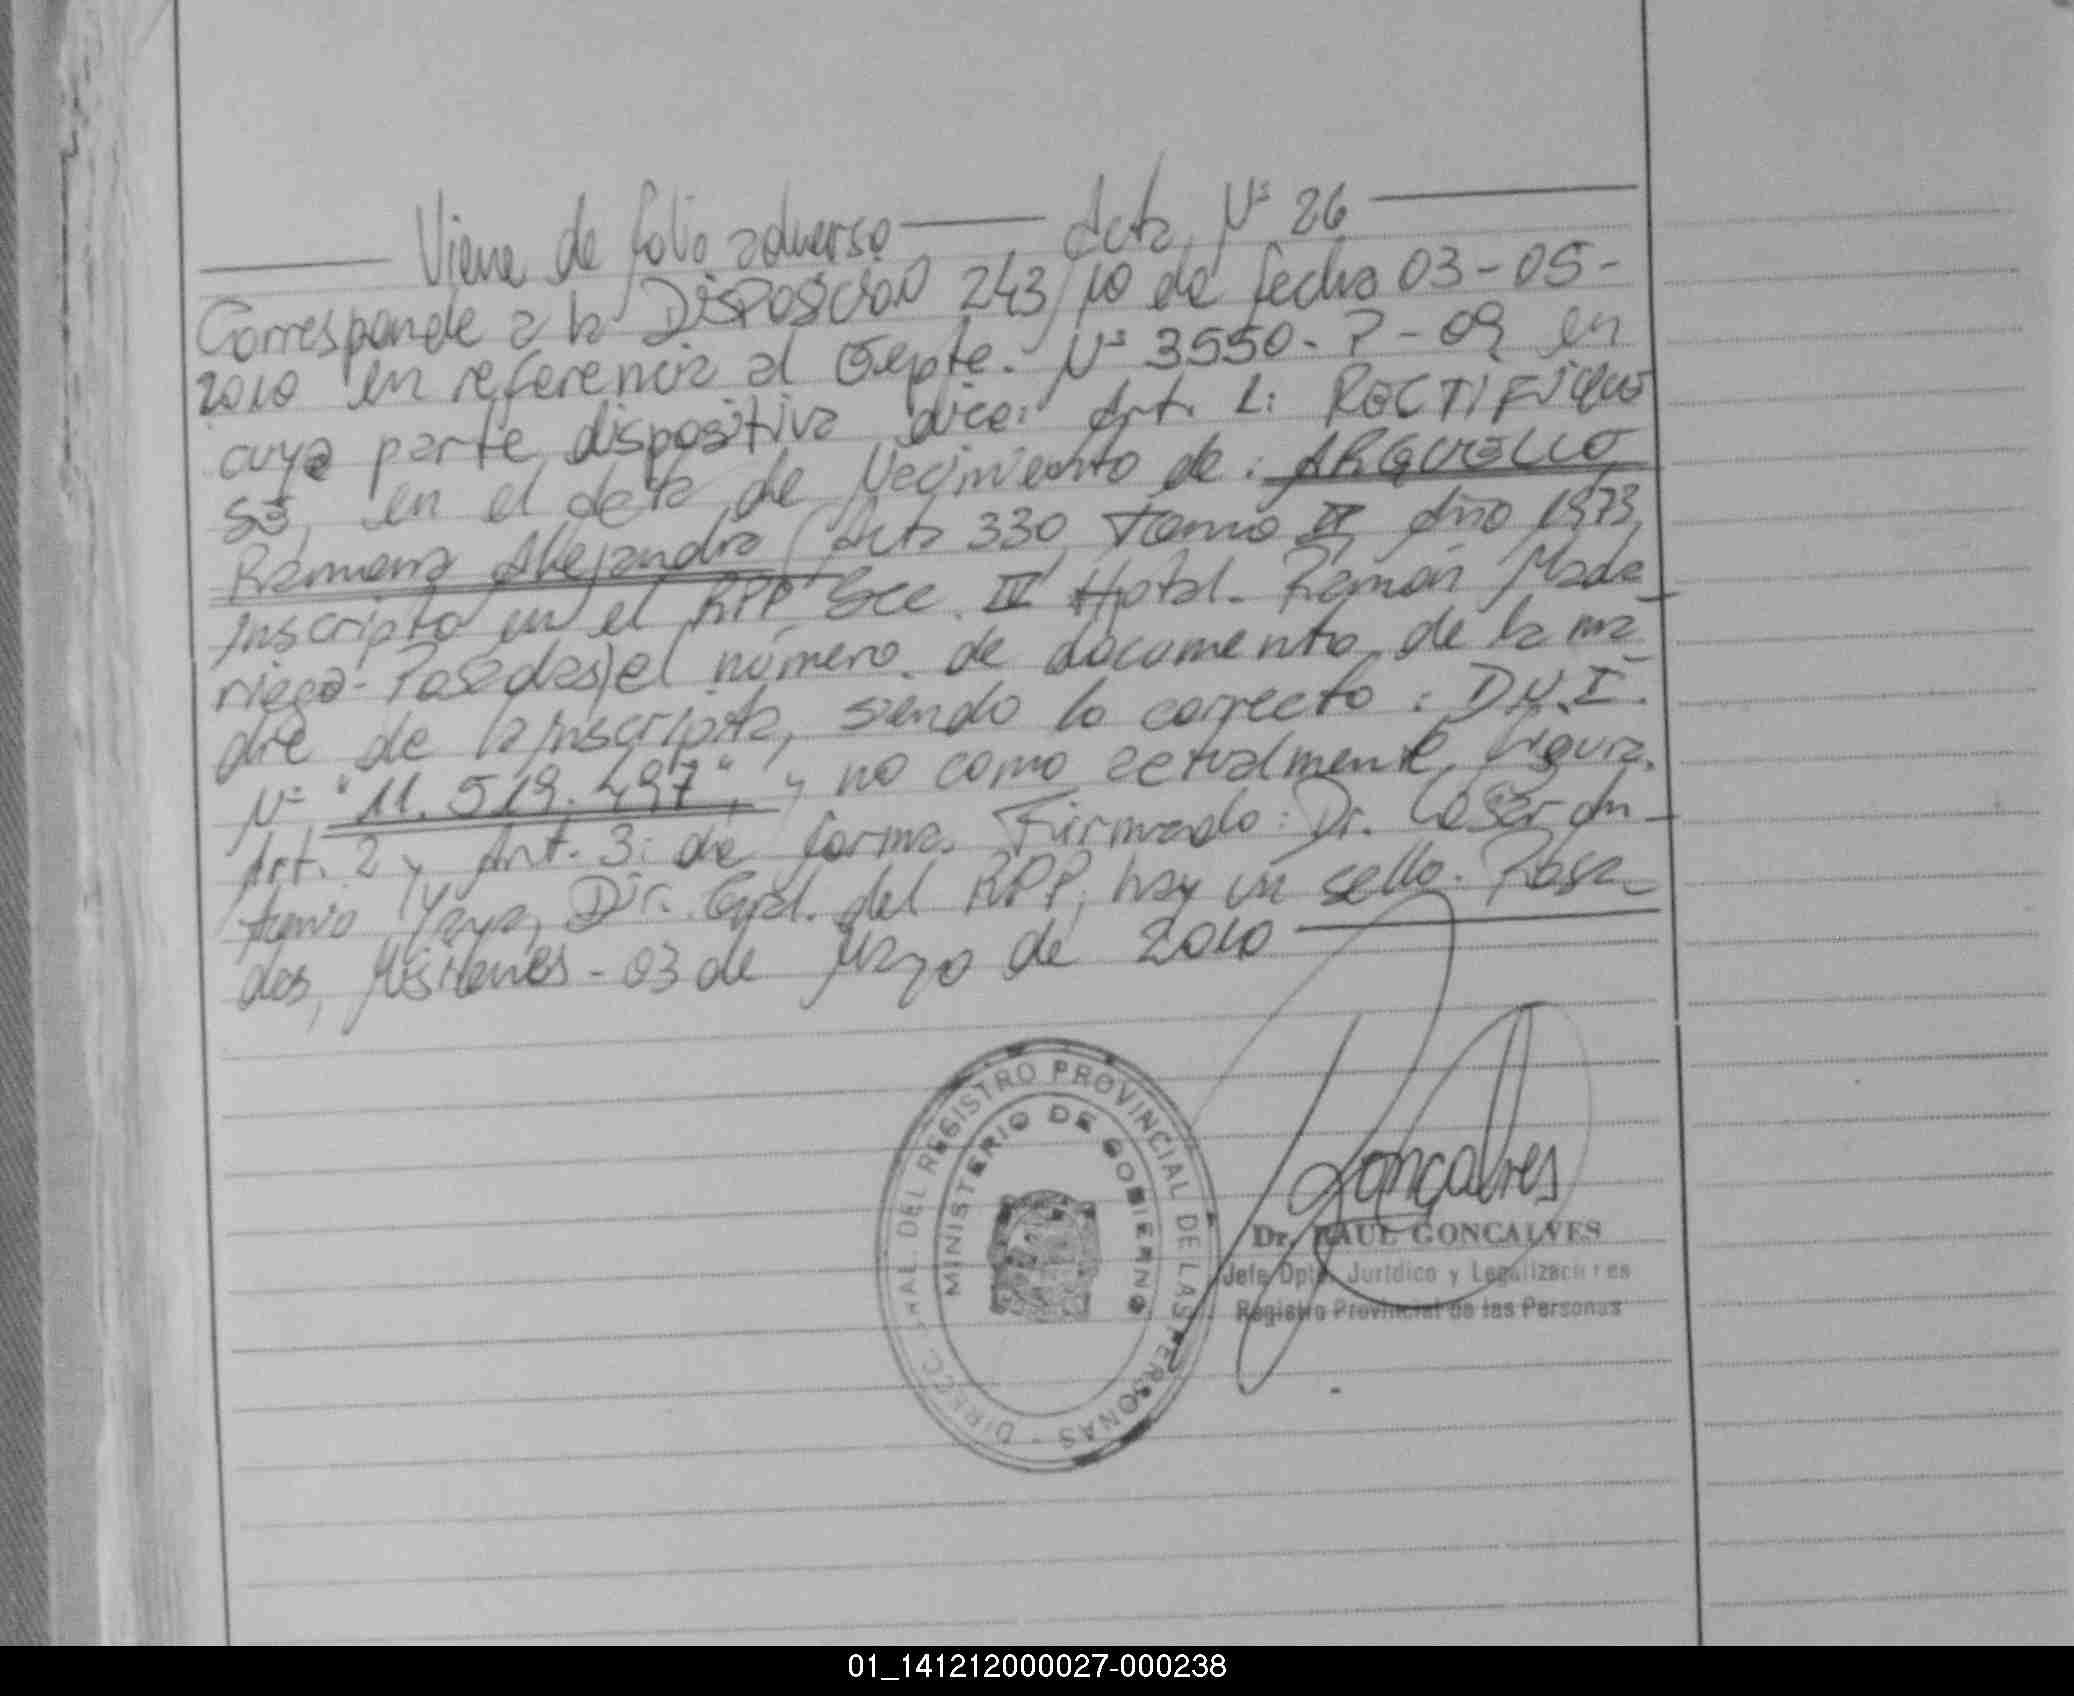 Viene de folio adverso — Acta Nº 26
Corresponde a la DISPOSICION 243/10 de fecha 03-05-
2010 en referencia al Expte. Nº 3550-P-09 en
cuya parte dispositiva dice: Art. 1: RECTIFIQUE
SE, en el acta de Nacimiento de: ARGUELLO
Ramona Alejandra (Acta 330, Tomo II, Año 1973,
inscripto en el RPP Secc. IV Hptal. Ramón Mada
riaga-Posadas) el número de documento de la ma
dre de la inscripta, siendo lo correcto: D.N.I.
Nº "11.519.497", y no como actualmente figura.
Art. 2 y Art. 3: de forma. Firmado: Dr. César An-
tonio Yaya, Dir. Gral. del RPP, hay un sello. Posa-
das, Misiones-03 de Mayo de 2010
DIRECC. GRAL. DEL REGISTRO PROVINCIAL DE LAS PERSONAS -
MINISTERIO DE GOBIERNO
Goncalves
Dr. RAUL GONCALVES
Jefe Dpto. Jurídico y Legalizaciones
Registro Provincial de las Personas
01_141212000027-000238